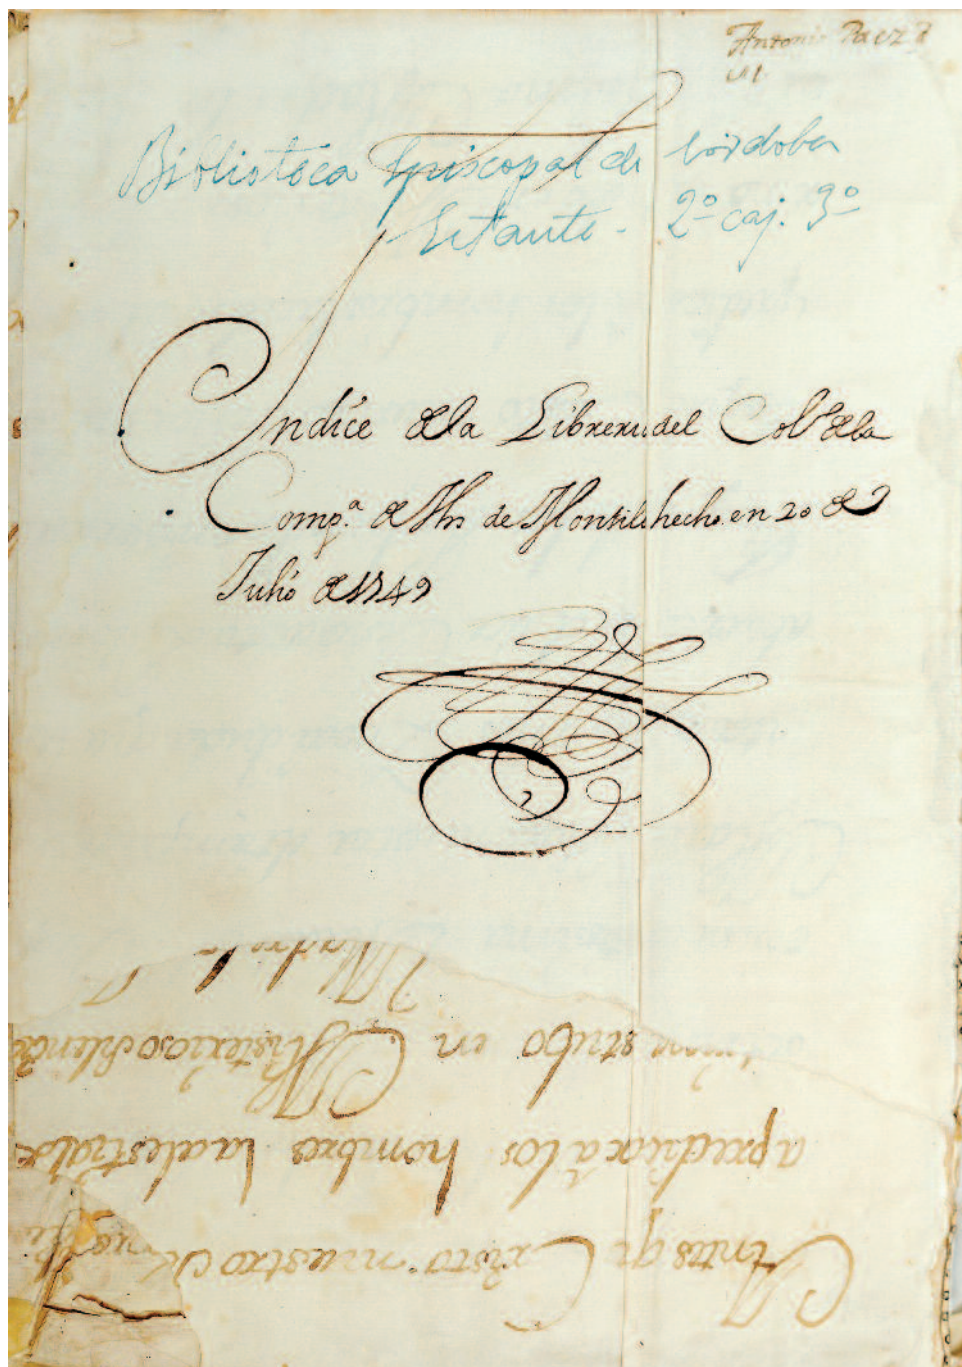 Antonio Paez
Biblioteca Episcopal de Cordoba
Estante - 2º caj. 3º
Indice de la Libreria del Colº de la
Comp.ª de Jhs de Montilla hecho en 20 de
Julio de 1749
Antes qe Cristo nuestro
a predicar a los hombres
estubo en Misterioso silencio